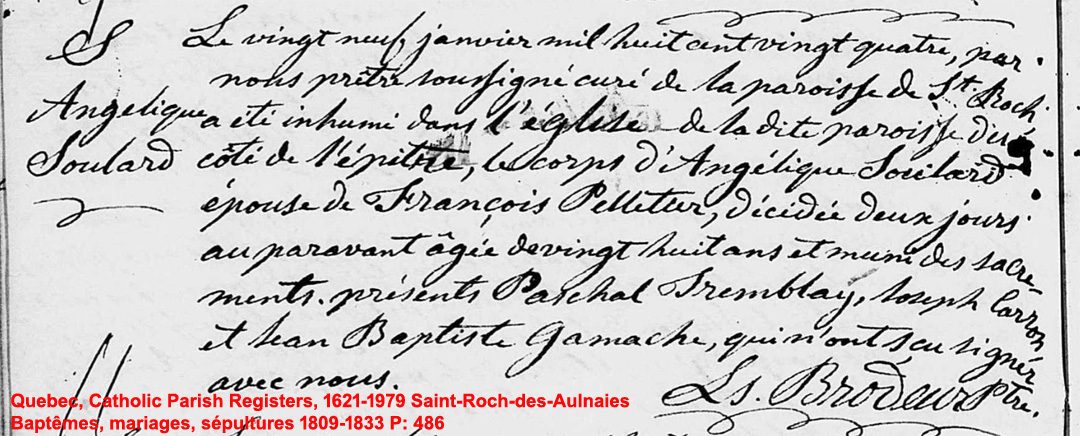 S
Angelique
Soulard
Le vingt neuf, janvier mil huit cent vingt quatre, par
nous prêtre soussigné curé de la paroisse de St. Roch
a été inhumé dans l'église de la dite paroisse du
côté de l'épitre, le corps d'Angélique Soulard
épouse de François Pelletier, décidée deux jours
au paravant âgée de vingt huit ans et muni des sacre-
ments. présents Paschal Tremblay, Joseph Carron
et Jean Baptiste Gamache, qui n'ont sçu signer
avec nous. Ls. Brodeur Ptre.
Quebec, Catholic Parish Registers, 1621-1979 Saint-Roch-des-Aulnaies
Baptêmes, mariages, sépultures 1809-1833 P: 486